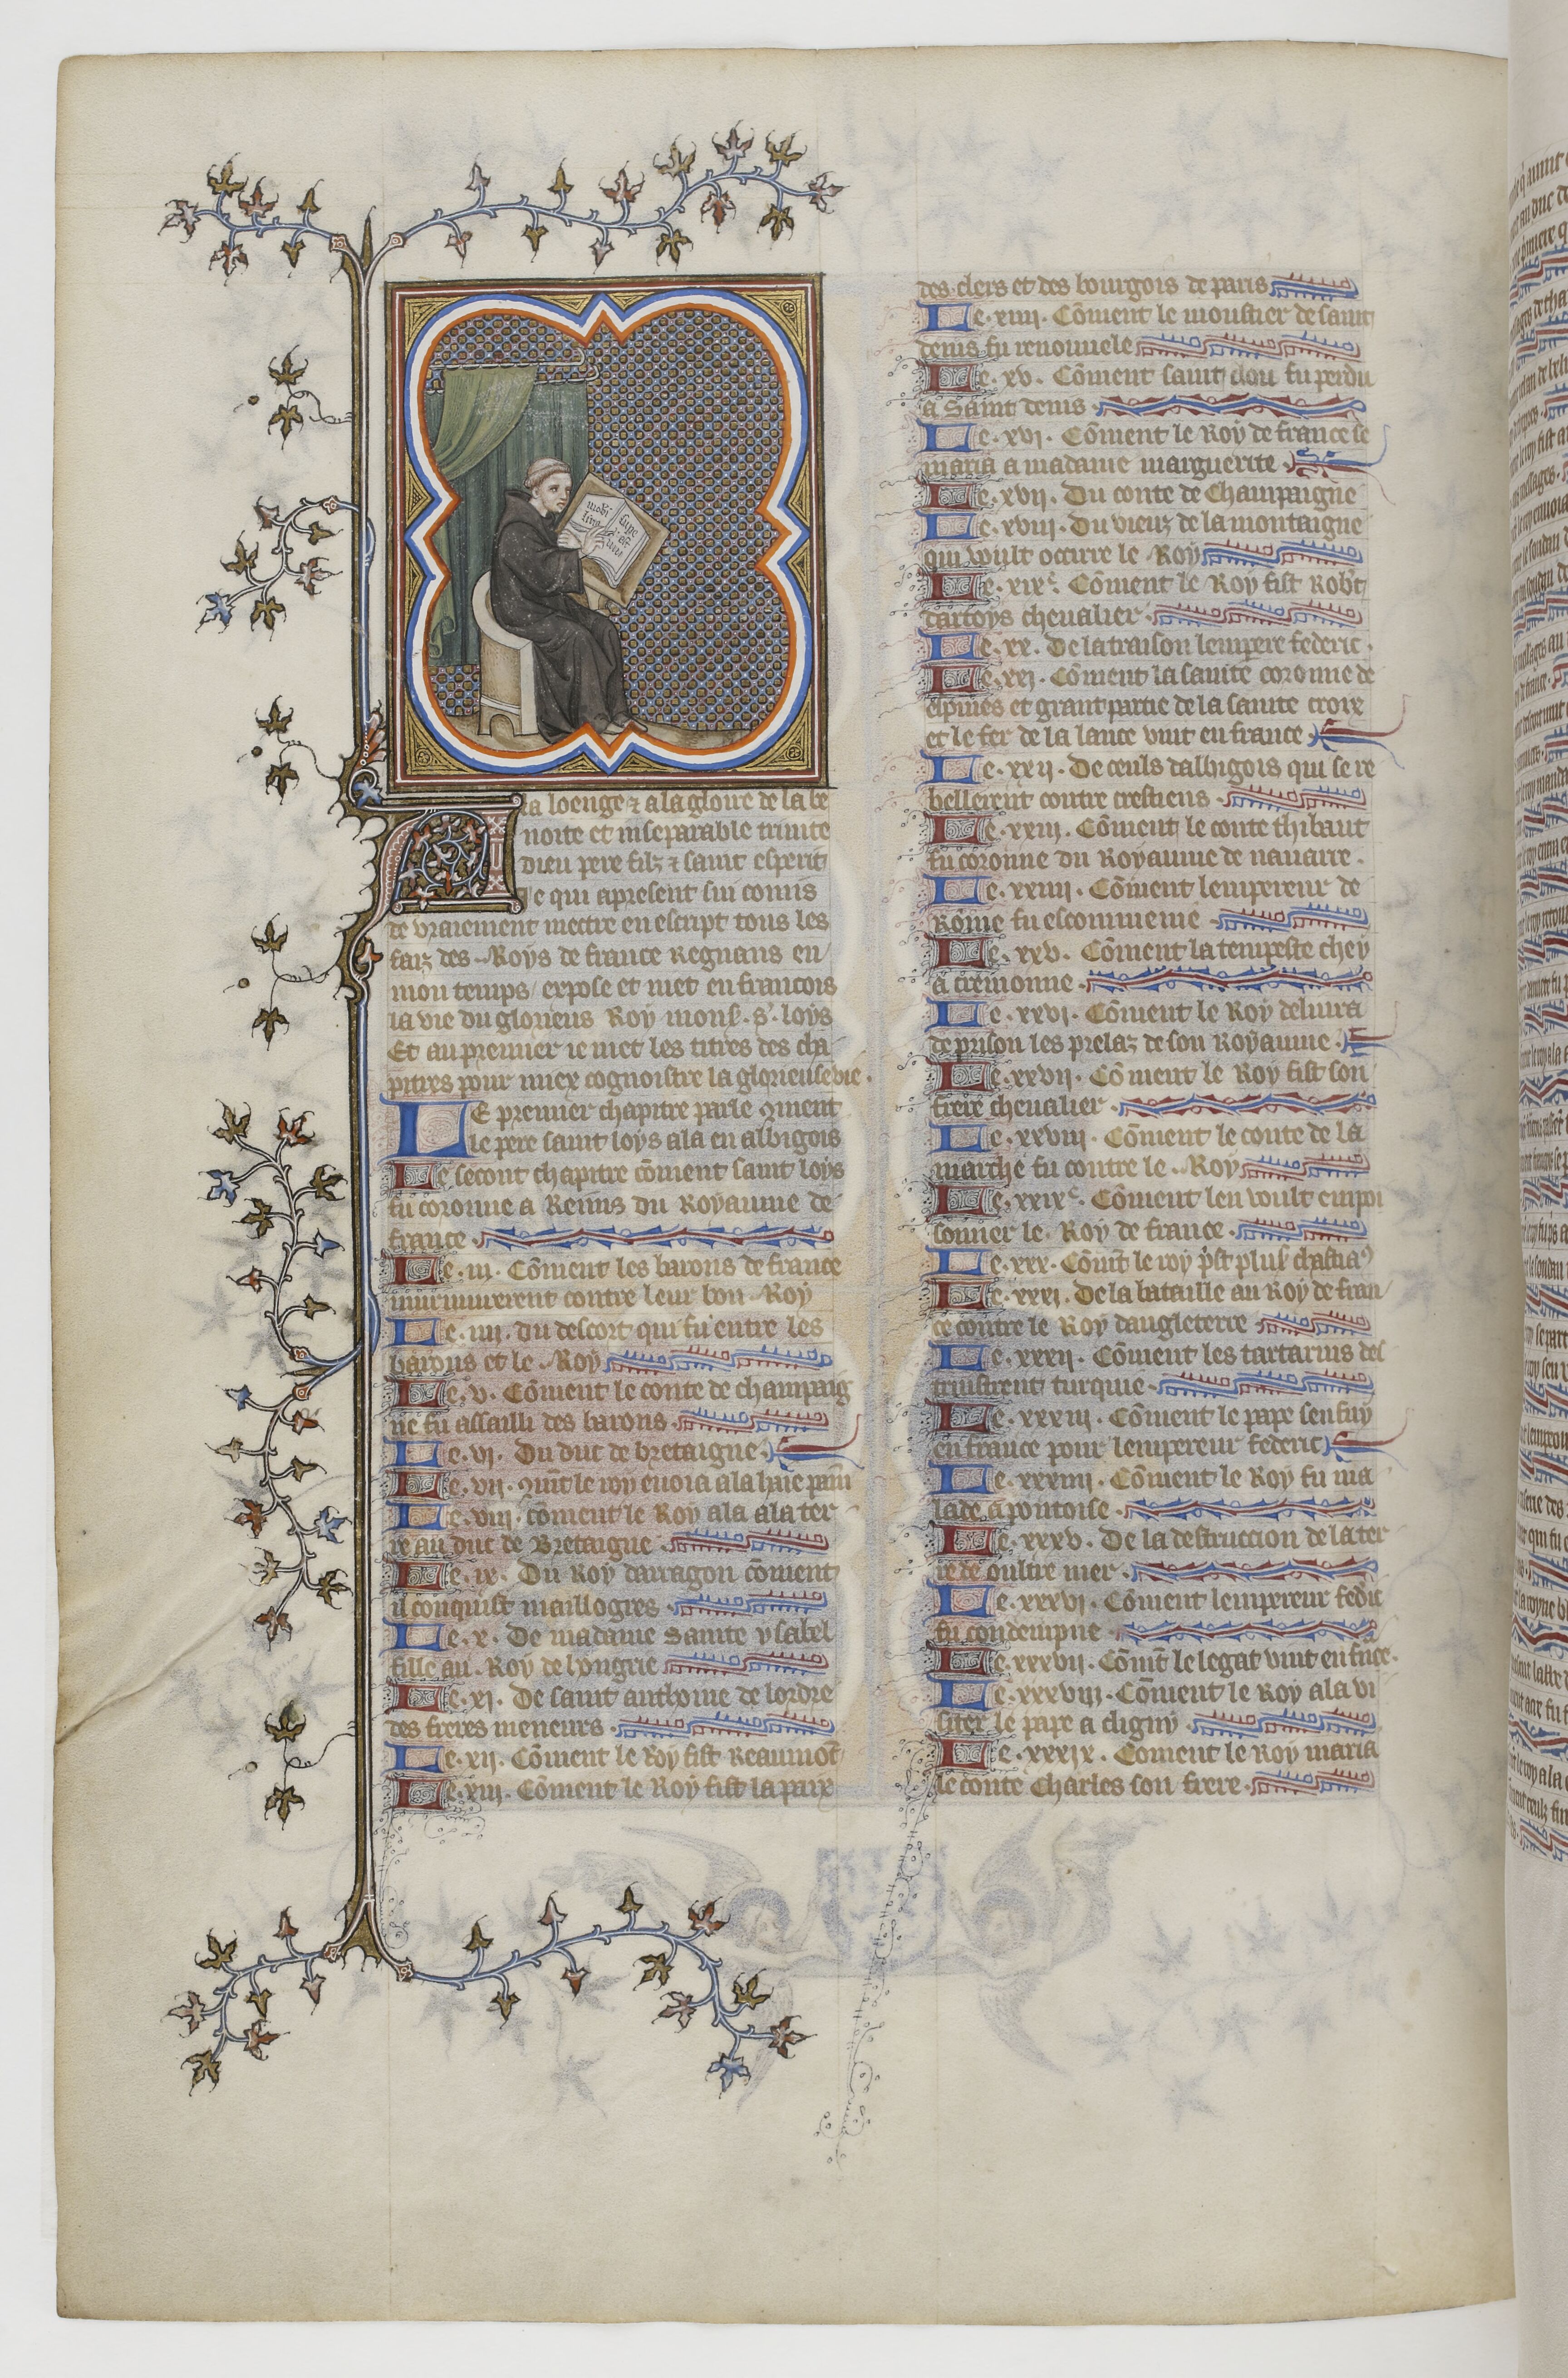 mobi
lino
supe
est
A la loenge ⁊ a la gloire de la be
noite et inseparable trinite
dieu pere filz ⁊ saint esperit
Je qui a present sui cõmis
de vraiement mectre en escript tous les
faiz des Roys de france Regnans en
mon temps / expose et met en francois
la vie du glorieus Roy mons̃. s̃. loys
Et au premier ie met les titres des cha
pitres pour miex cognoistre la glorieuse vie .
LE premier chapitre parle ꝯment
le pere saint loys ala en albigois
Le secont chapitre cõment saint loys
fu coronne a Reins du Royaume de
france .
Le .iii. Cõment les barons de france
murmurerent contre leur bon Roy
Le .iiii. du descort qui fu entre les
barons et le .Roy
Le .v. Cõment le conte de champaig
ne fu assailli des barons .
Le .vi. Du duc de bretaigne .
Le .vii. ꝯmt̃ le roy enoia a la haie
Le .viii. cõment le Roy ala a la ter
re au duc de Bretaigne .
Le .ix. Du Roy darragon cõment
il conquist maillogres .
Le .x. De madame Sainte ysabel
fille au .Roy de hongrie
Le .xi. De saint anthoine de lordre
des freres meneurs .
Le .xii. Cõment le Roy fist Reaumõt
Le .xiii. Cõment le Roy fist la paix
des clers et des bourgois de paris
Le .xiiii. Cõment le moustier de saint
denis fu renouuele
Le .xv. Cõment saint clou fu perdu
a Saint denis .
Le .xvi. Cõment le Roy de france se
maria a madame marguerite .
Le .xvii. Du conte de Champaigne
Le .xviii. Du vieux de la montaigne
qui voult occirre le .Roy
Le .xixe. Cõment le Roy fist Rob̃t
dartoys cheualier .
Le .xx. De la traison lempere federic .
Le .xxi. Cõment la sainte coronne de
espines et grant partie de la sainte croix
et le fer de la lance vint en france .
Le .xxii. De ceuls dalbigois qui se re
bellerent contre crestiens .
Le .xxiii. Cõment le conte thibaut
fu coronne du Royaume de nauarre .
Le .xxiiii. Cõment lempereur de
Romme fu escommenie .
Le .xxv. Cõment la tempeste chey
a cremonne .
Le .xxvi. Cõment le Roy deliura
de prison les prelaz de son Royaume .
Le .xxvii. Cõment le Roy fist son
frere cheualier .
Le .xxviii. Cõment le conte de la
marche fu contre le .Roy
Le .xxixe. Cõment len voult empoi
sonner le .Roy de france .
Le .xxx. Cõmt̃ le roy p̃st plus̃ chastia᷒
Le .xxxi. De la bataille au Roy de fran
ce contre le Roy dangleterre
Le .xxxii. Cõment les tartarins des
truistrent turquie .
Le .xxxiii. Cõment le pape senfuy
en france pour lempereur federic
Le .xxxiiii. Cõment le Roy fu ma
lade a pontoise .
Le .xxxv. De la destruccion de la ter
re de oultre mer .
Le .xxxvi. Cõment lempereur fedric
fu condempne .
Le .xxxvii. Cõmt̃ le legat vint en frãce.
Le .xxxviii. Cõment le Roy ala vi
siter le pape a cligny .
Le .xxxix. Coment le Roy maria
le conte Charles son frere .